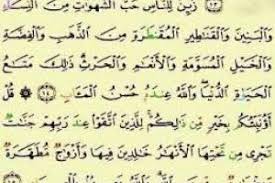 ١٣ زُيِّنَ لِلنَّاسِ حُبُّ ٱلشَّهَوَٰتِ مِنَ ٱلنِّسَآءِ
وَٱلۡبَنِينَ وَٱلۡقَنَٰطِيرِ ٱلۡمُقَنطَرَةِ مِنَ ٱلذَّهَبِ وَٱلۡفِضَّةِ
وَٱلۡخَيۡلِ ٱلۡمُسَوَّمَةِ وَٱلۡأَنۡعَٰمِ وَٱلۡحَرۡثِۗ ذَٰلِكَ مَتَٰعُ
ٱلۡحَيَوٰةِ ٱلدُّنۡيَاۖ وَٱللَّهُ عِندَهُۥ حُسۡنُ ٱلۡمَـَٔابِ ١٤ ۞ قُلۡ
أَؤُنَبِّئُكُم بِخَيۡرٖ مِّن ذَٰلِكُمۡۖ لِلَّذِينَ ٱتَّقَوۡاْ عِندَ رَبِّهِمۡ جَنَّٰتٞ
تَجۡرِي مِن تَحۡتِهَا ٱلۡأَنۡهَٰرُ خَٰلِدِينَ فِيهَا وَأَزۡوَٰجٞ مُّطَهَّرَةٞ